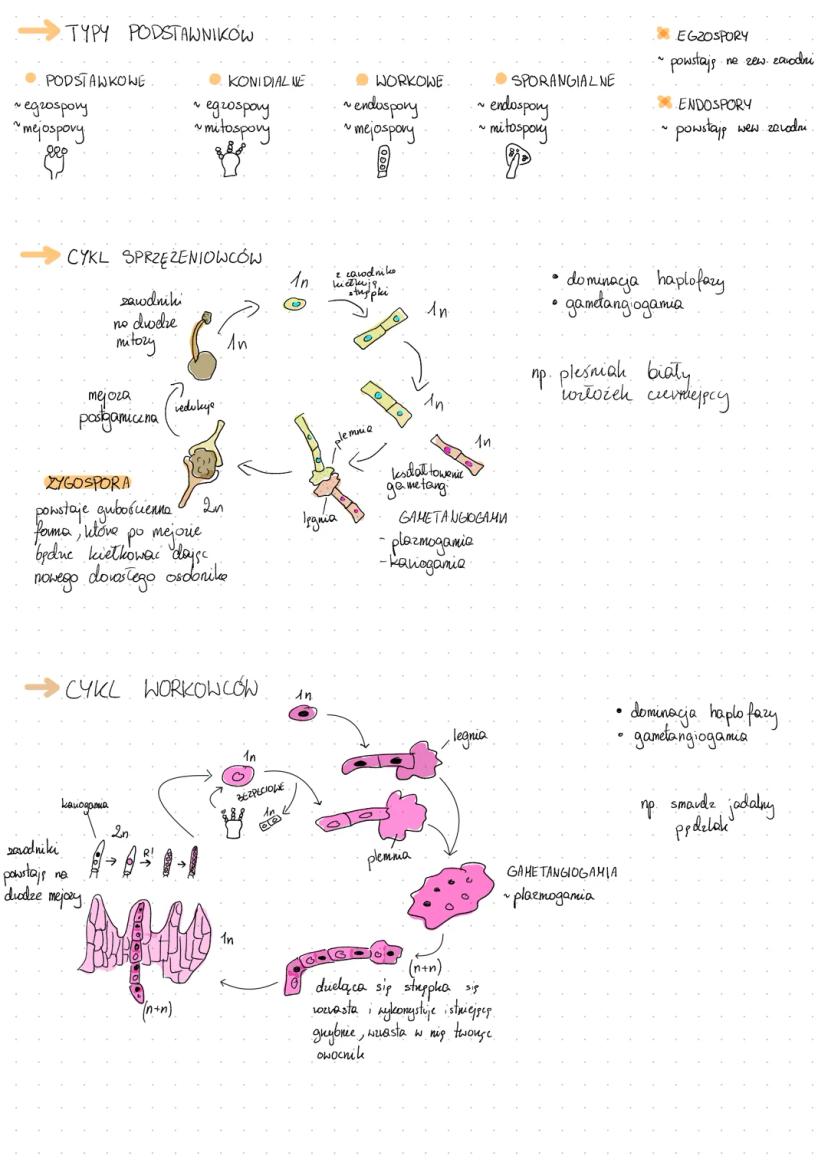 TYPY PODSTAWNIKÓW
PODSTAWKOWE
~ egzospory
~ mejospory
KONIDIALNE
~ egzospory
~ mitospory
WORKOWE
~ endospory
~ mejospory
SPORANGIALNE
~ endospory
~ mitospory
EGZOSPORY
~ powstają na zew. zarodni
ENDOSPORY
~ powstają wew. zarodni
CYKL SPRZĘŻENIOWCÓW
1n
z zarodnika
kiełkują
strzępki
1n
1n
1n
kształtowanie
gametangi
GAMETANGIOGAMIA
- plazmogamia
- kariogamia
plemnia
lęgnia
2n
ZYGOSPORA
powstaje grubościenna
forma, która po mejozie
będzie kiełkować dając
nowego dorosłego osobnika
mejoza
postgamiczna
redukcja
zarodniki
na drodze
mitozy
1n
• dominacja haplofazy
• gametangiogamia
np. pleśniak biały
rozłożek czerniejący
CYKL WORKOWCÓW
1n
legnia
1n
BEZPŁCIOWE
1n
plemnia
GAMETANGIOGAMIA
~ plazmogamia
(n+n)
dzieląca się strzępka się
rozrasta i wykorzystuje istniejącą
grzybnie, wrasta w nią tworząc
owocnik
1n
(n+n)
kariogamia
2n
R!
zarodniki
powstają na
drodze mejozy
• dominacja haplofazy
• gametangiogamia
np. smardz jadalny
pędzlak